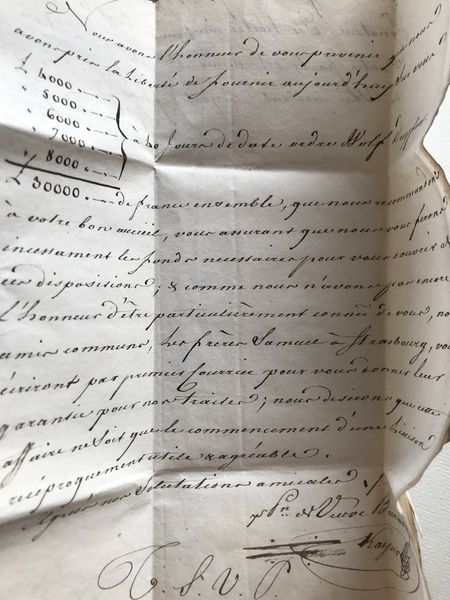 Nous avons l'honneur de vous prevenir que nous
avons pris la Liberté de fournir aujourd'huy sur vous
£ 4000 „—
„ 5000 „—
„ 6000 „—
„ 7000 „—
„ 8000 „—
à 40 jours de date ordre Wolf
£ 30000 „— de france ensemble, que nous recommandons
à votre bon acceuil, vous assurant que nous vous ferons
incessament les fonds necessaires pour vous couvrir de
ces dispositions; & comme nous n'avons pas encore
l'honneur d'être particulièrement connûs de vous, nos
amis communs, les frères Samuel à Strasbourg, vous
écriront par premier Courrier pour vous donner leur
garantie pour nos traites; nous desirons que cette
affaire ne soit que le commencement d'une liaison
réciproquement utile & agréable.
Agréés nos Salutations amicales.
de Veuve
T. S. V. P.